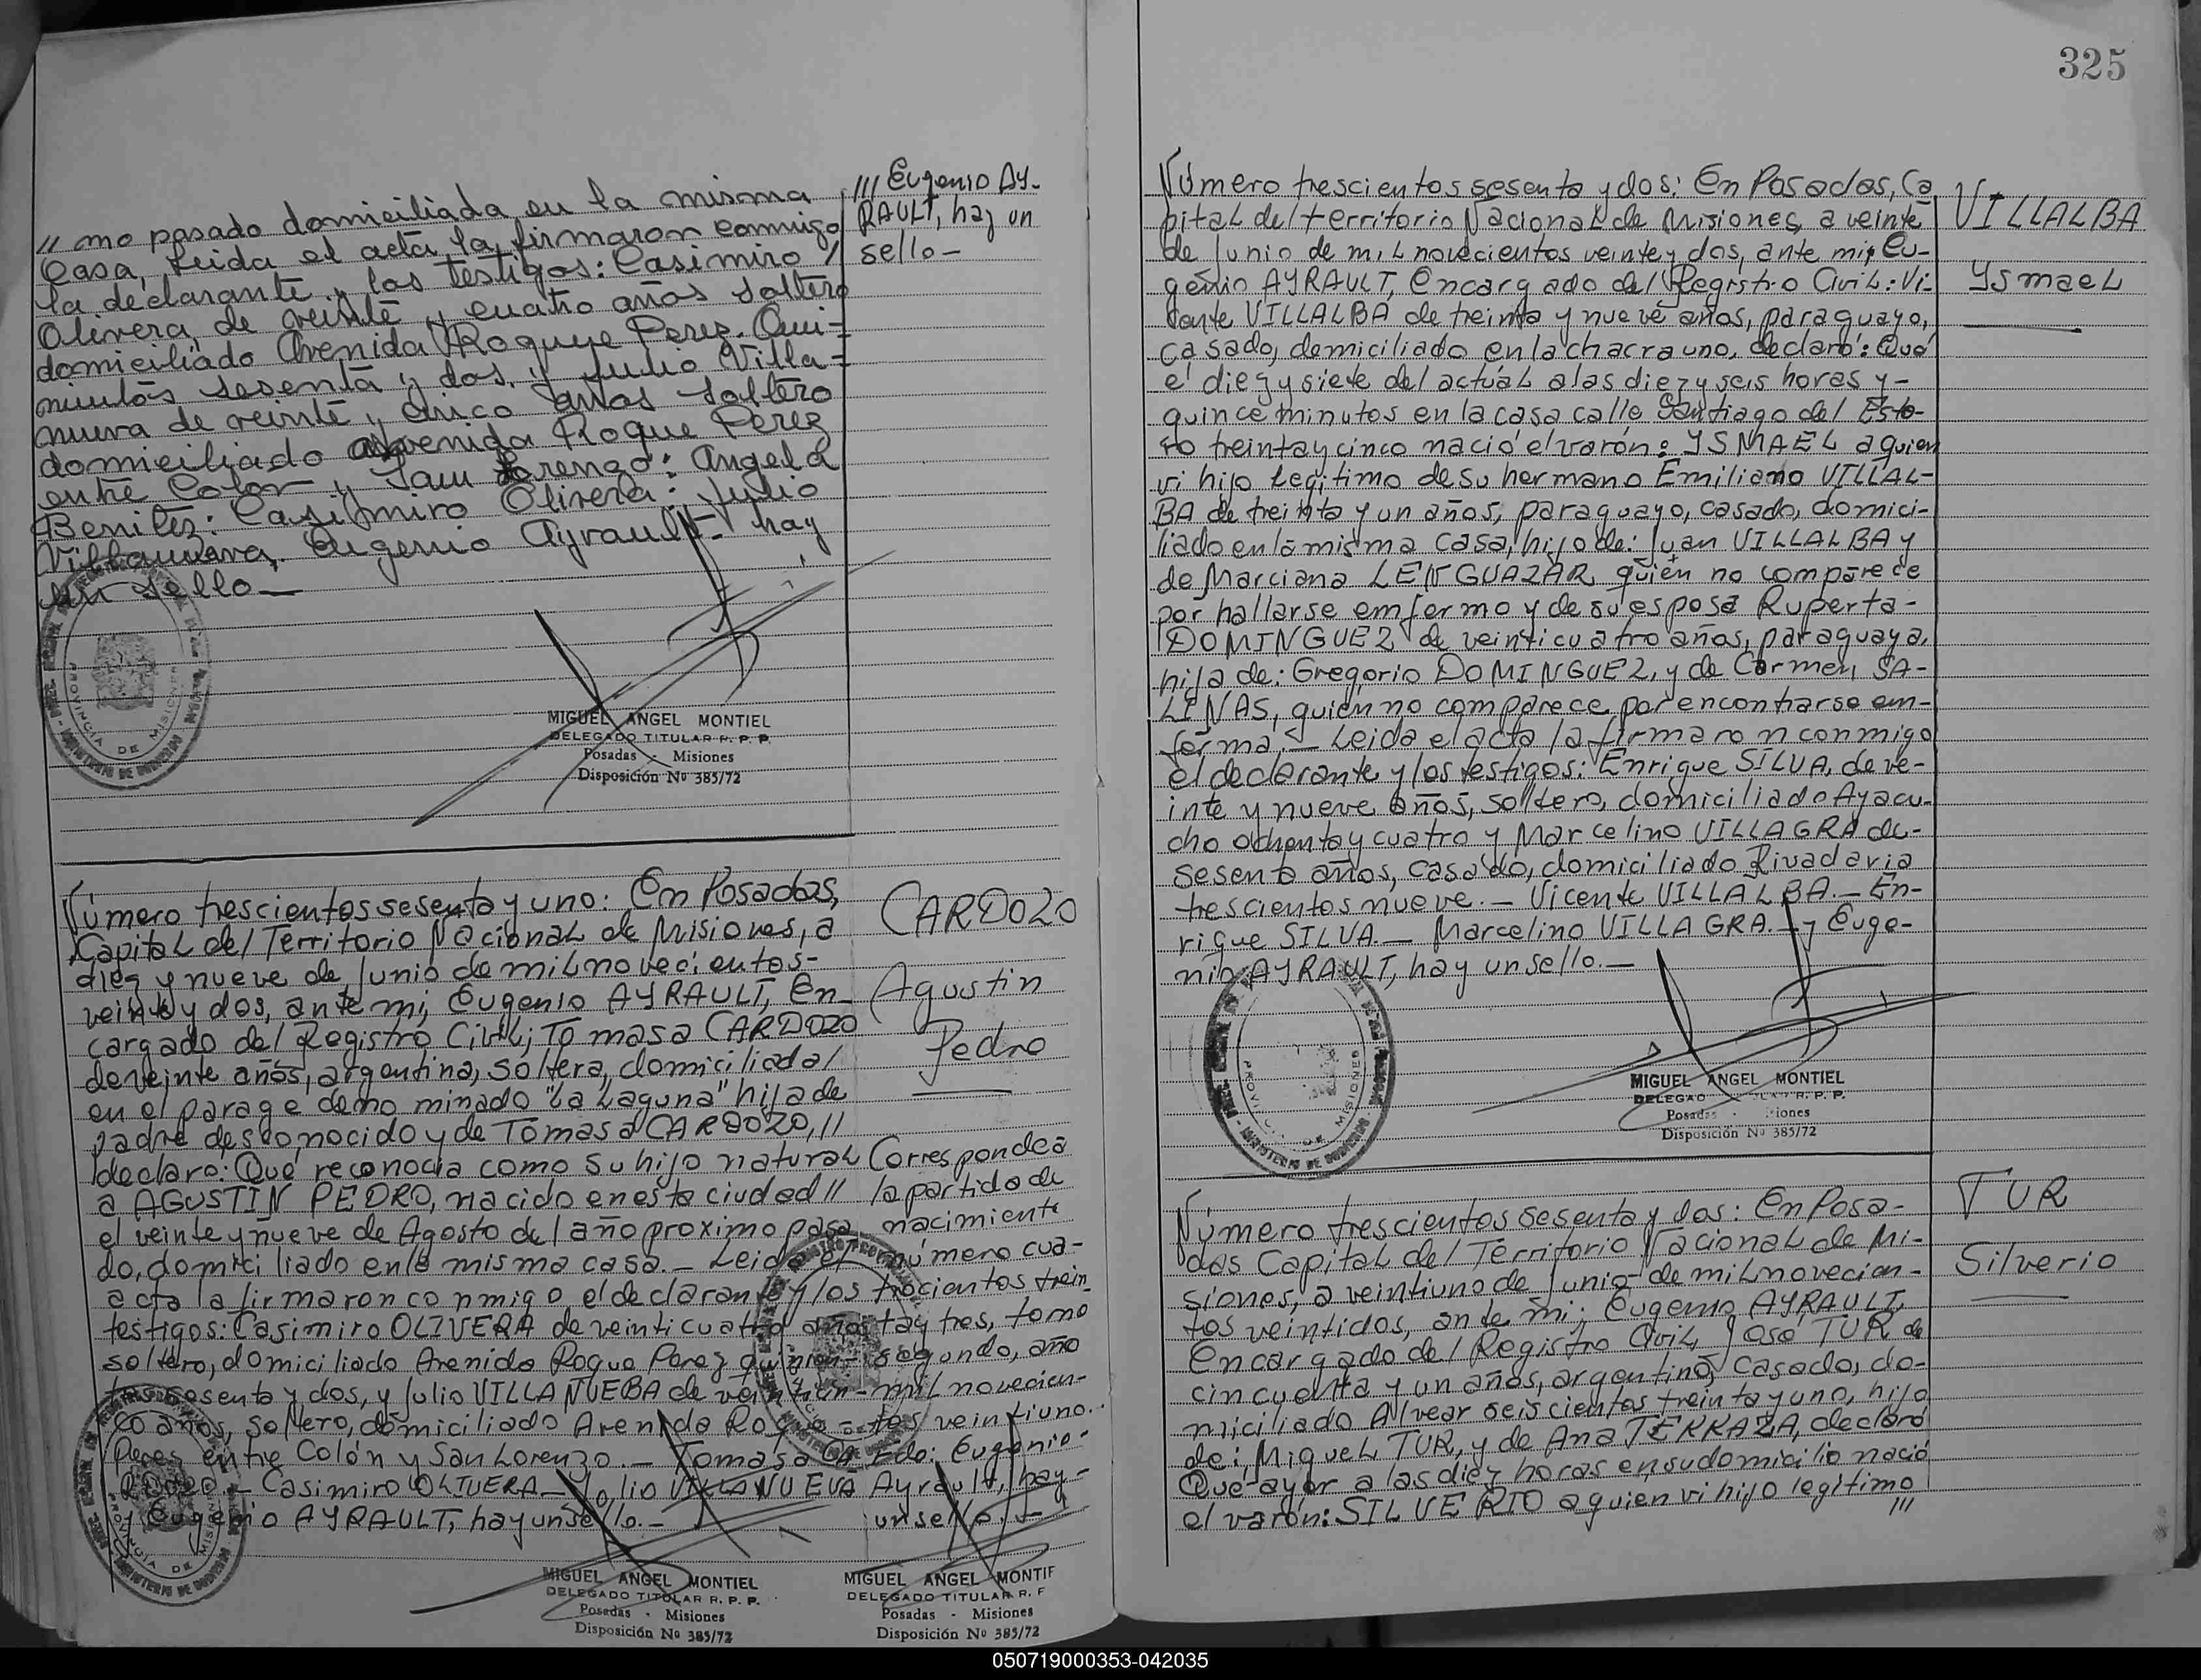 325
// mo pasado domiciliada en la misma
casa, leida el acta la firmaron conmigo
la declarante y los testigos: Casimiro /
Olivera, de veinte y cuatro años soltero
domiciliado Avenida Roque Perez Qui-
nientos sesenta y dos, y Julio Villa-
nueva de veinte y cinco años soltero
domiciliado avenida Roque Perez
entre Colon y San Lorenzo: Angela
Benitez: Casimiro Olivera: Julio
Villanueva, Eugenio Ayrault- hay
un sello_
/// Eugenio AY-
RAULT, hay un
sello-
PROVINCIA DE MISIONES
MIGUEL ANGEL MONTIEL
DELEGADO TITULAR R. P. P.
Posadas - Misiones
Disposición Nº 385/72
Número trescientos sesenta y uno: En Posadas,
Capital del Territorio Nacional de Misiones, a
diez y nueve de Junio de mil novecientos-
veinte y dos, ante mi, Eugenio AYRAULT, En-
cargado del Registro Civil; Tomasa CARDOZO
de veinte años, argentina, soltera, domiciliada/
en el parage denominado "La Laguna" hija de
padre desconocido y de Tomasa CARDOZO, //
declaro: Que reconocia como su hijo natural
a AGUSTIN PEDRO, nacido en esta ciudad //
el veinte y nueve de Agosto del año proximo pasa-
do, domiciliado en la misma casa.- Leida el
acta la firmaron conmigo el declarante y los
testigos: Casimiro OLIVERA de veinticuatro años
soltero, domiciliado Avenida Roque Perez quinien-
tos sesenta y dos, y Julio VILLANUEBA de veinticin-
co años, soltero, domiciliado Avenida Roque-
Perez entre Colón y San Lorenzo.- Tomasa CA
RDOZO.- Casimiro OLIVERA- Julio VILLANUEVA
y Eugenio AYRAULT, hay un sello.-
CARDOZO
Agustin
Pedro
Corresponde a
la partida de
nacimiento
número cua-
trocientos trein
ta y tres, tomo
segundo, año
mil novecien-
tos veintiuno.
Fdo: Eugenio-
Ayrault, hay-
un sello.-
PROVINCIA DE MISIONES
MIGUEL ANGEL MONTIEL
DELEGADO TITULAR R. P. P.
Posadas - Misiones
Disposición Nº 385/72
MIGUEL ANGEL MONTIF
DELEGADO TITULAR R. F
Posadas - Misiones
Disposición Nº 385/72
Número trescientos sesenta y dos: En Posadas, Ca
pital del territorio Nacional de Misiones, a veinte
de Junio de mil novecientos veinte y dos, ante mi, Eu-
genio AYRAULT, Encargado del Registro Civil: Vi-
cente VILLALBA de treinta y nueve años, paraguayo,
casado, domiciliado en la chacra uno, declaró: Qué
el diez y siete del actual a las diez y seis horas y-
quince minutos en la casa calle Santiago del Este-
ro treinta y cinco nació el varón: YSMAEL a quien
vi hijo legitimo de su hermano Emiliano VILLAL-
BA de treinta y un años, paraguayo, casado, domici-
liado en la misma casa, hijo de: Juan VILLALBA y
de Marciana LENGUAZAR quien no comparece
por hallarse emfermo y de su esposa Ruperta-
DOMINGUEZ de veinticuatro años, paraguaya,
hija de: Gregorio DOMINGUEZ, y de Carmen SA-
LINAS, quien no comparece por encontrarse em-
ferma.- Leida el acta la firmaron conmigo
el declarante y los testigos: Enrique SILVA, de ve-
inte y nueve años, soltero, domiciliado Ayacu-
cho ochenta y cuatro y Marcelino VILLAGRA de-
sesenta años, casado, domiciliado Rivadavia
trescientos nueve.- Vicente VILLALBA.- En-
rique SILVA.- Marcelino VILLAGRA.- y Euge-
nio AYRAULT, hay un sello.-
VILLALBA
YsmaeL
PROVINCIA DE MISIONES
MIGUEL ANGEL MONTIEL
DELEGAD R. P. P.
Posadas - iones
Disposición Nº 385/72
Número trescientos sesenta y dos: En Posa-
das Capital del Territorio Nacional de Mi-
siones, a veintiuno de Junio de mil novecien-
tos veintidos, ante mi; Eugenio AYRAULT,
Encargado del Registro Civil, José TUR de
cincuenta y un años, argentino, casado, do-
miciliado Alvear seiscientos treinta y uno, hijo
de: Miguel TUR, y de Ana TERRAZA, declaró
Que ayer a las diez horas en su domicilio nació
el varón: SILVERIO a quien vi hijo legítimo
///
TUR
Silverio
050719000353-042035